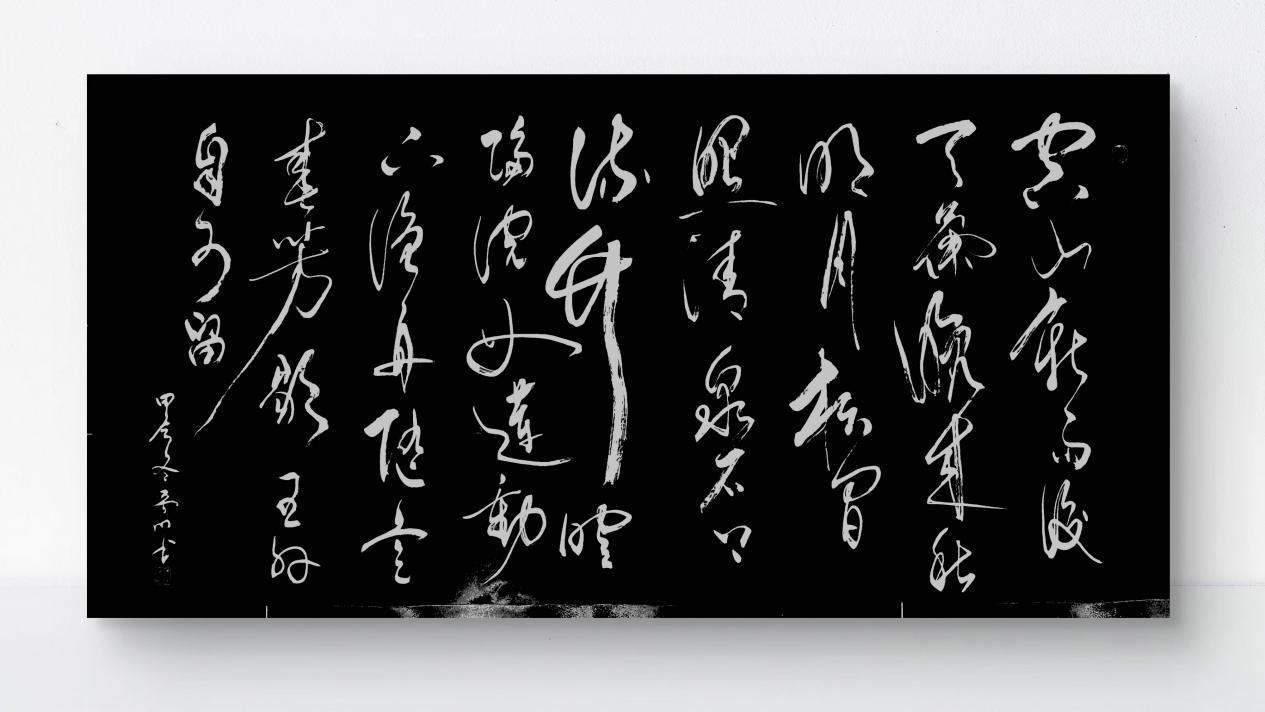 空山新雨後
天氣晚來秋
明月松間
照清泉石上
流竹喧
歸浣女蓮動
下漁舟隨意
春芳歇王孫
自可留